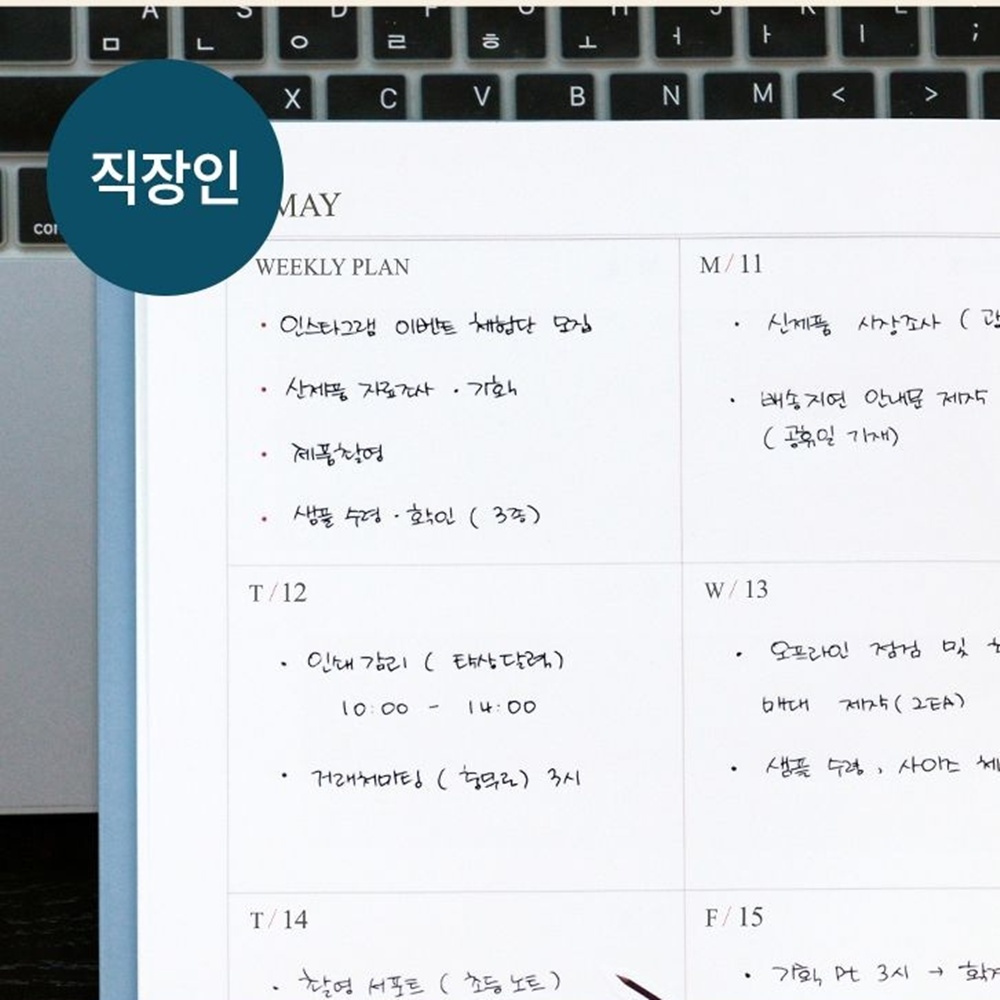 A S D F G H J K L
ㅁ ㄴ ㅇ ㄹ ㅎ ㅗ ㅓ ㅏ ㅣ ;
X C V B N M < >
직장인
MAY
WEEKLY PLAN
· 인스타그램 이벤트 체험단 모집
· 신제품 자료조사 · 기획
· 제품촬영
· 샘플 수령 · 확인 ( 3종)
M / 11
· 신제품 시장조사 (
· 배송지연 안내문 제작
( 공휴일 기재)
T / 12
· 인쇄감리 ( 탁상달력)
10:00 - 14:00
· 거래처미팅 ( 충무로) 3시
W / 13
· 오프라인 점검 및
매대 제작(2EA)
· 샘플 수령, 사이즈 체
T / 14
· 촬영 서포트 ( 초등노트)
F / 15
· 기획 Pt 3시 →